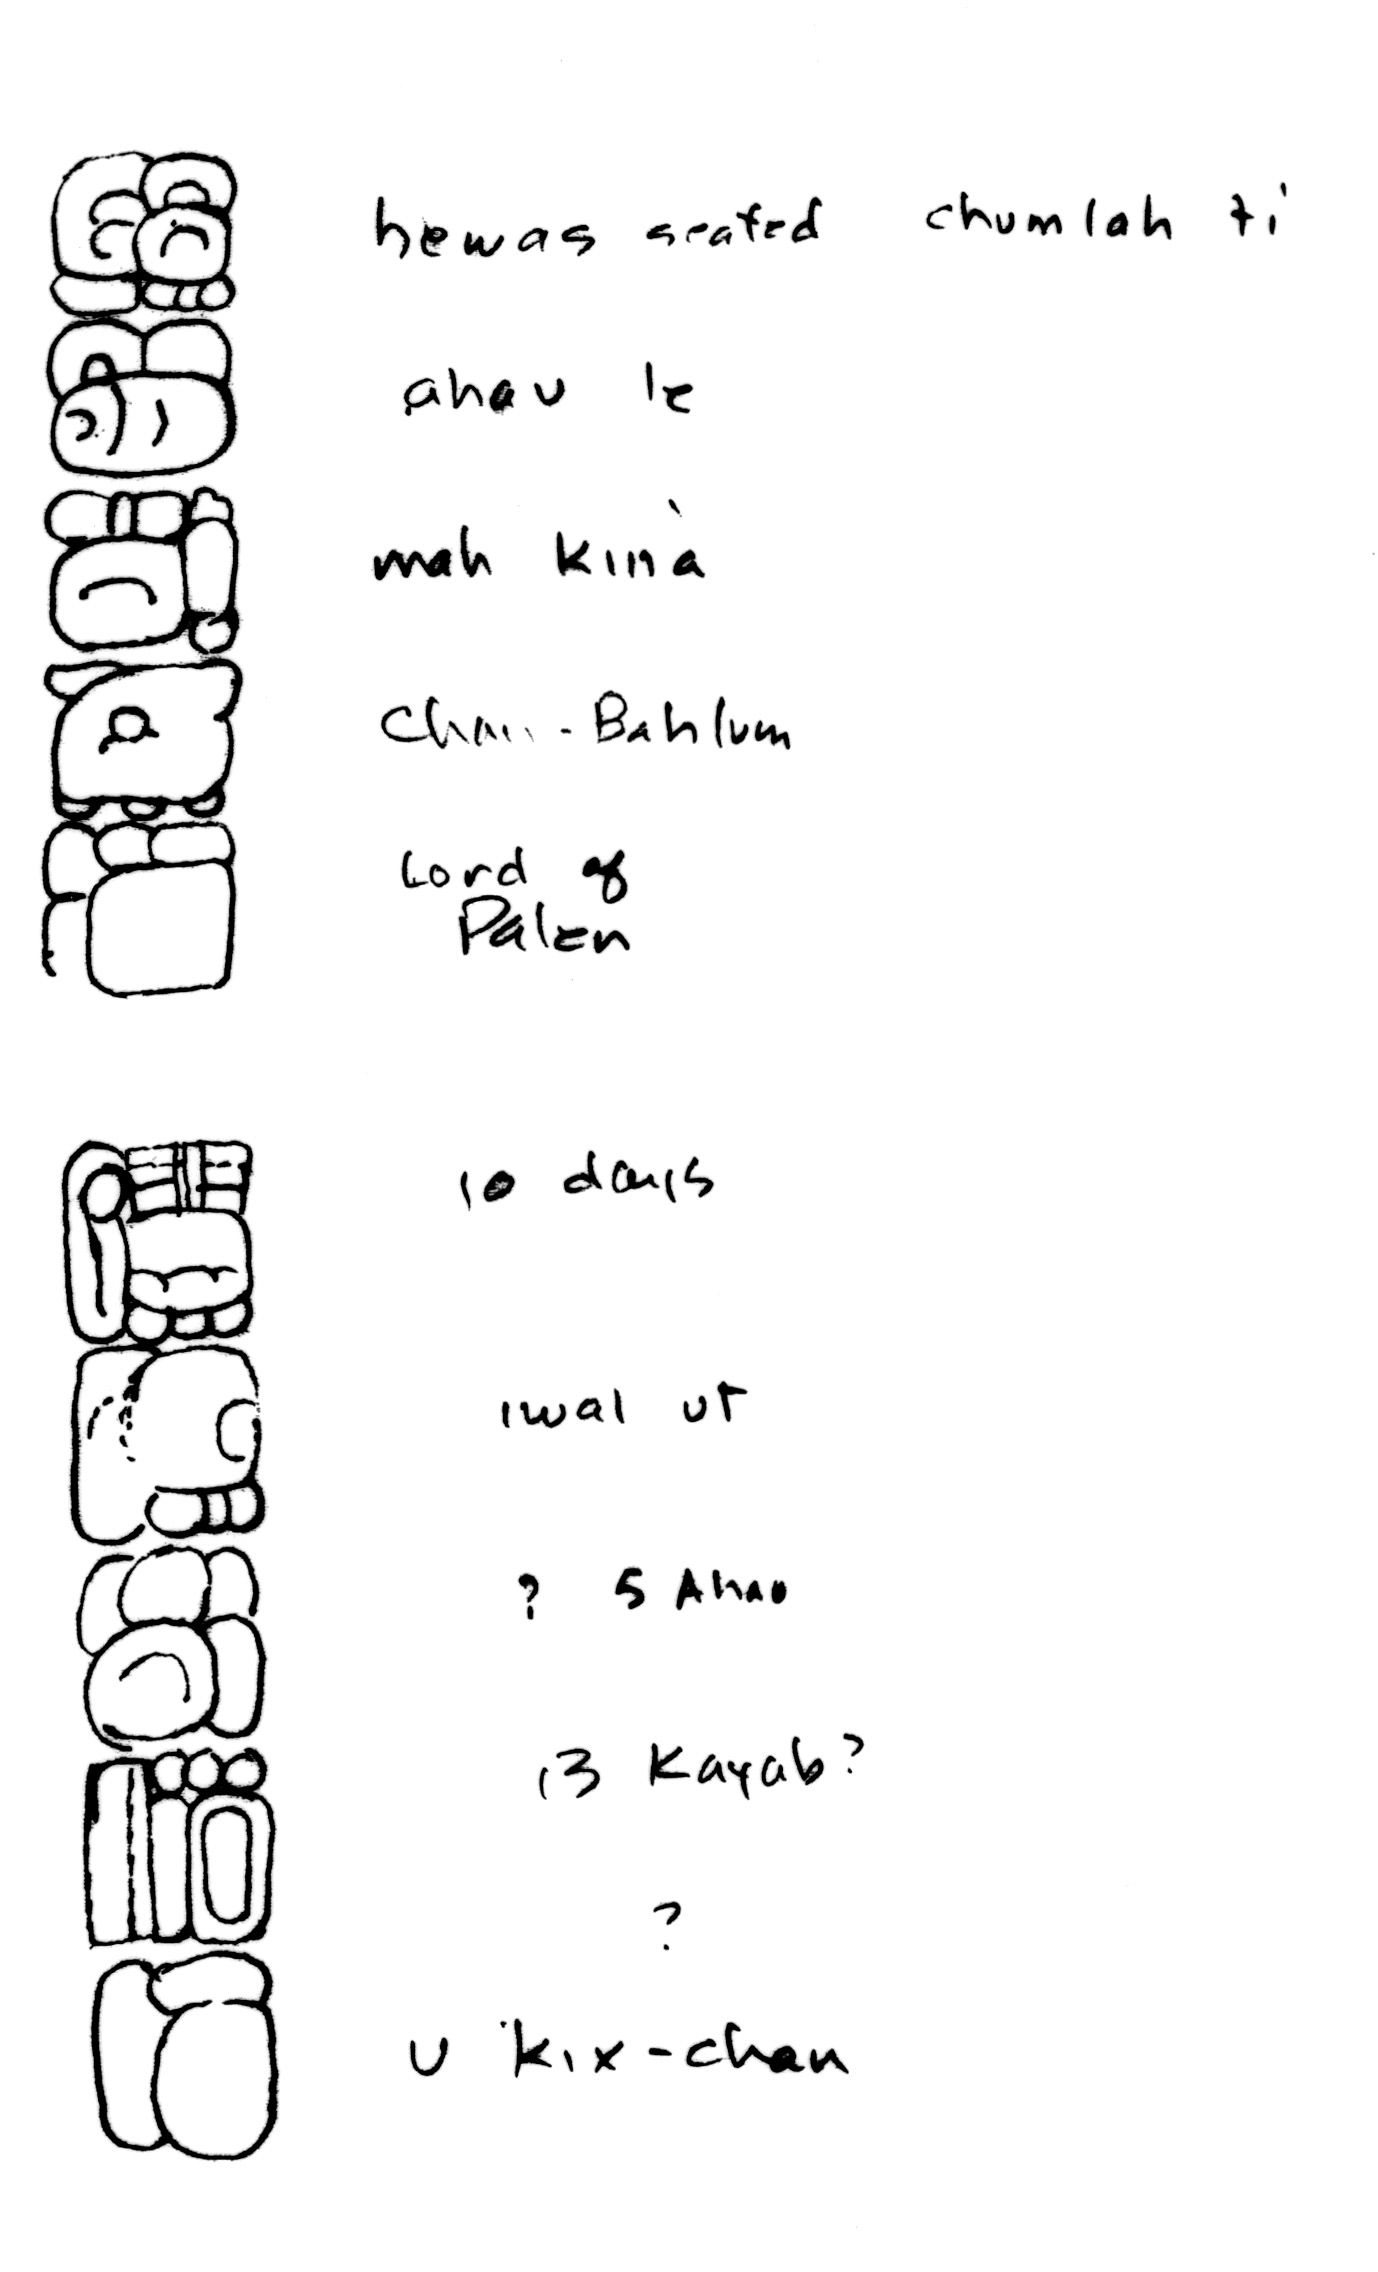 he was seated chumlah ti
ahau le
mah kina
Chan-Bahlum
Lord of
Palen
10 days
iwal ut
? 5 Ahau
13 Kayab?
?
U Kix-chan